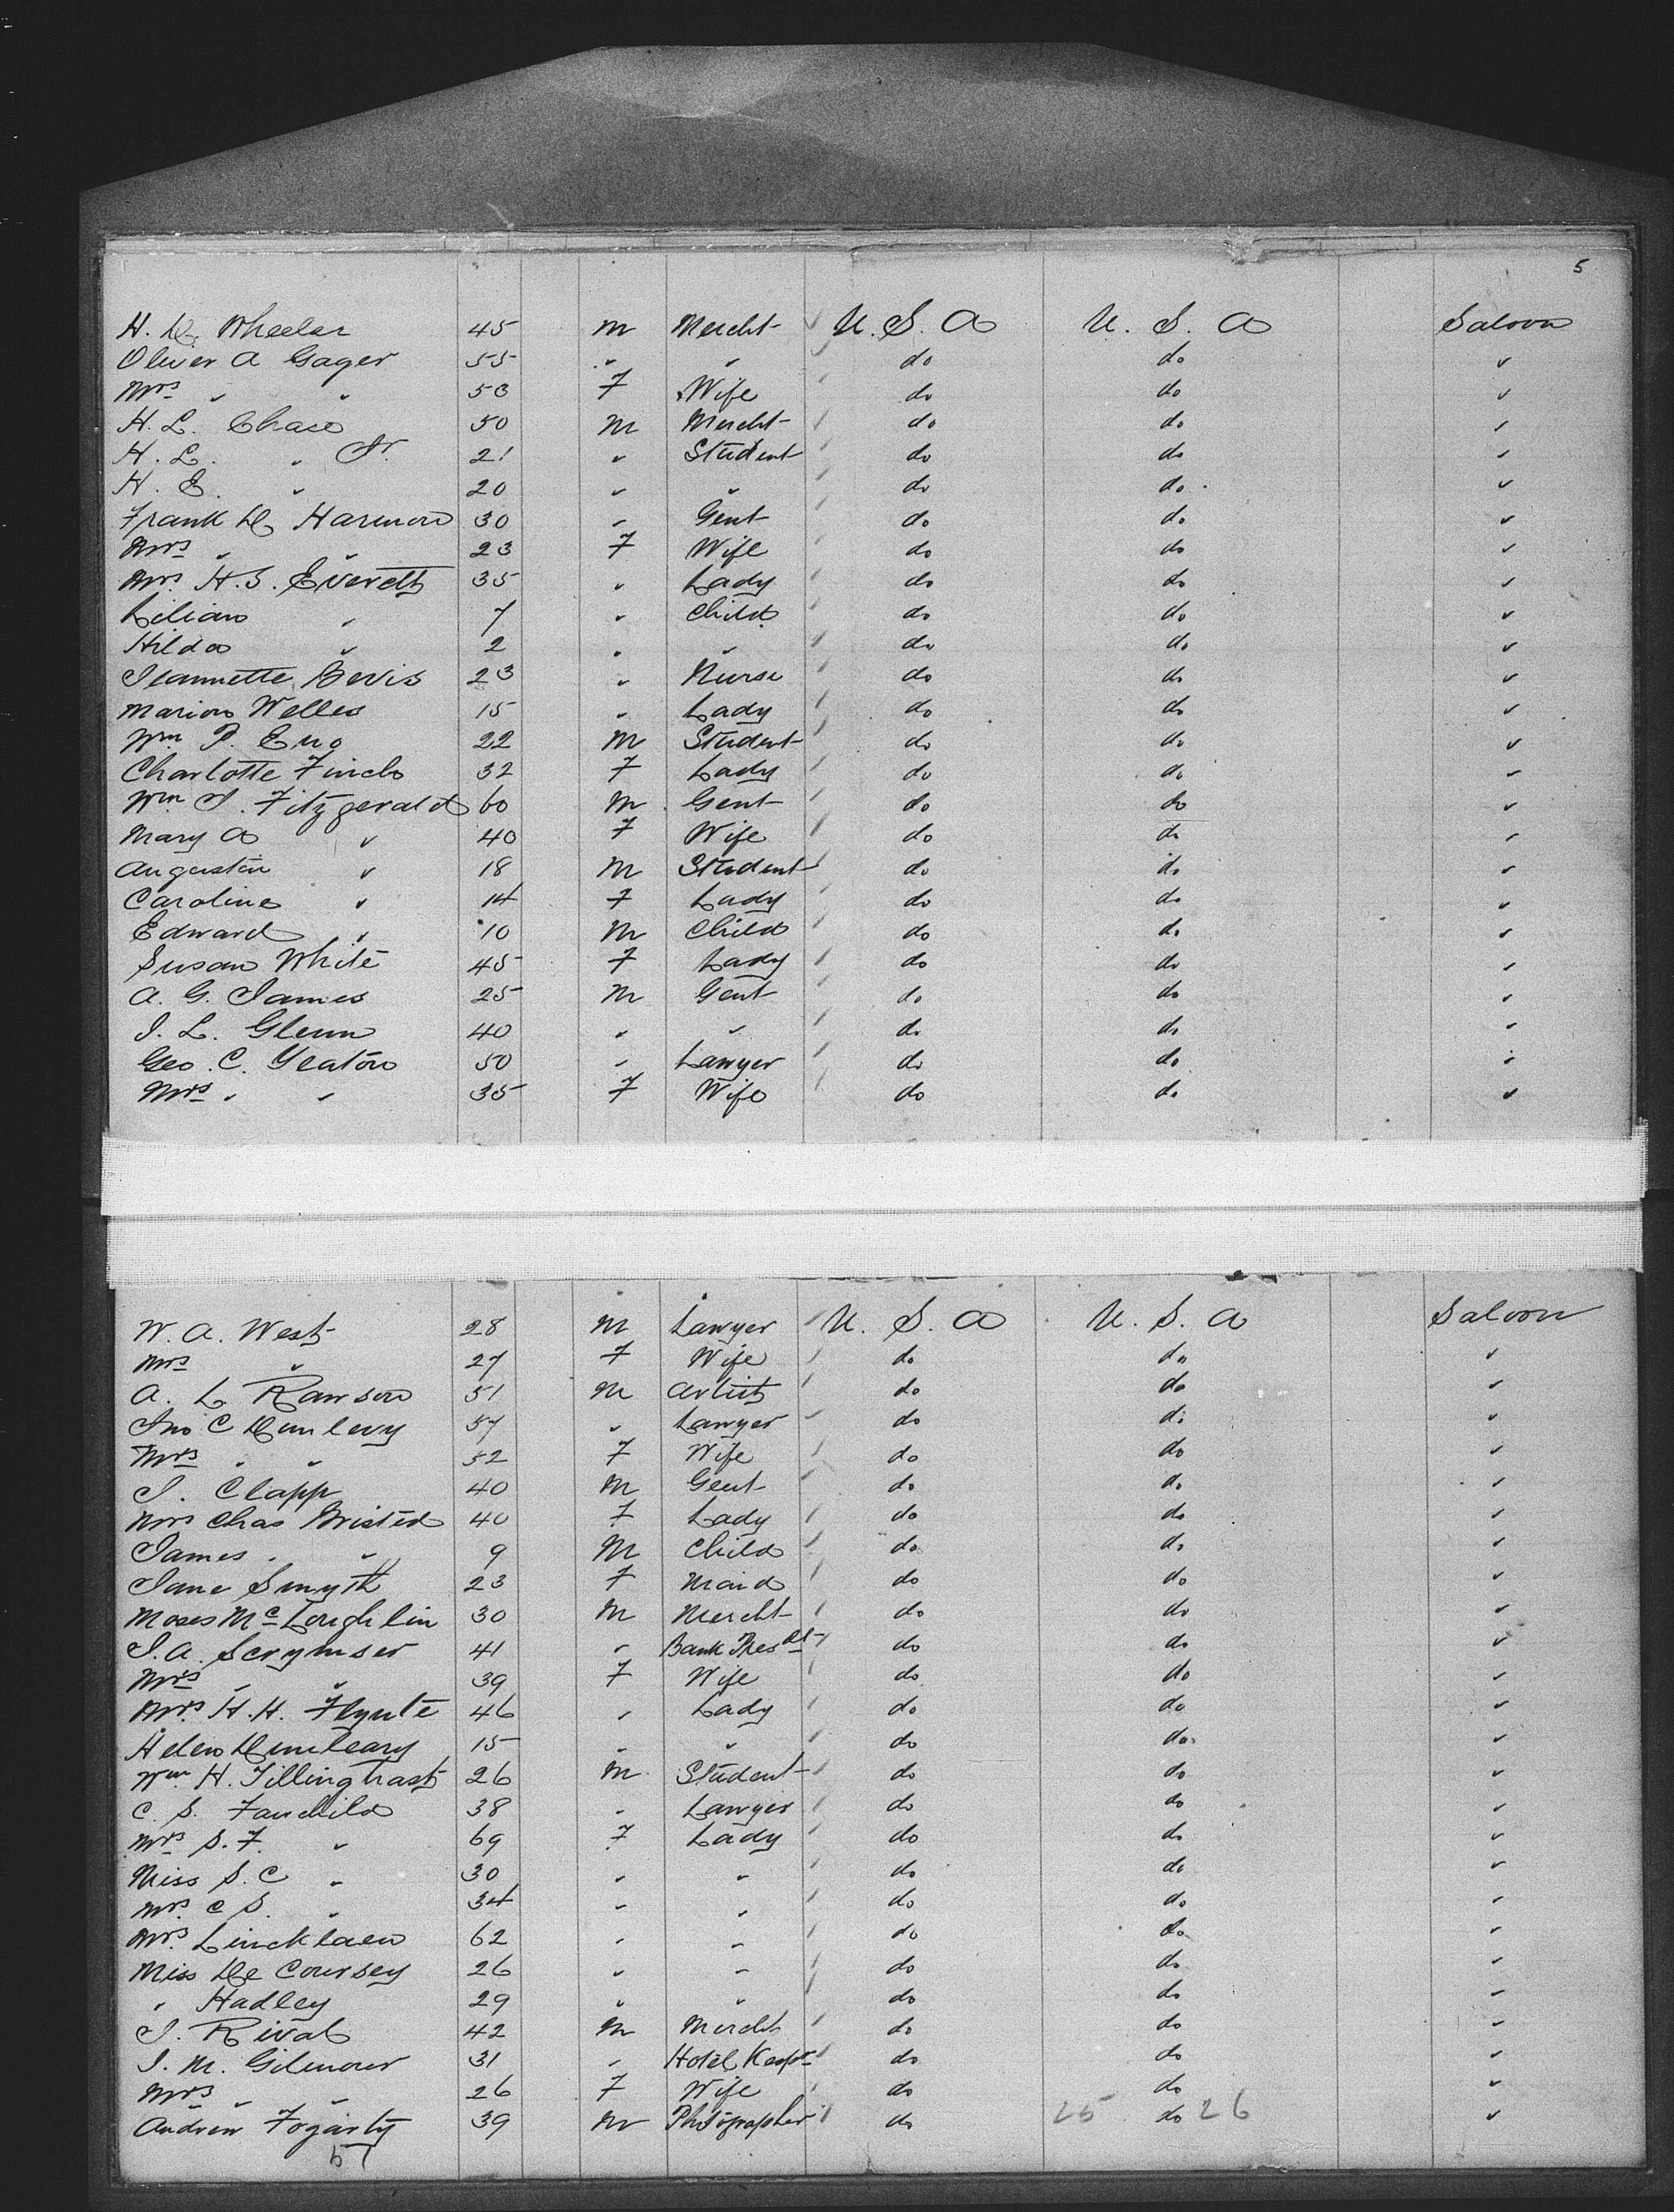 5
H. D. Wheeler 45 m Mercht U. S. A U. S. A Saloon
Oliver A Gager 55 " " do do "
Mrs " " 53 F Wife do do "
H. L. Chase 50 M Mercht do do "
H. L. " Jr 21 " Student do do "
H. E. " 20 " " do do "
Frank D Harmon 30 " Gent do do "
Mrs " " 23 F Wife do do "
Mrs H. S. Everett 35 " Lady do do "
Lilian " 7 " Child do do "
Hilda " 2 " " do do "
Jeannette Bevis 23 " Nurse do do "
Marion Welles 15 " Lady do do "
Wm P. Eno 22 M Student do do "
Charlotte Finch 32 F Lady do do "
Wm J. Fitzgerald 60 M Gent do do "
Mary A " 40 F Wife do do "
Augustin " 18 M Student do do "
Caroline " 14 F Lady do do "
Edward " 10 M Child do do "
Susan White 45 F Lady do do "
A. G. James 25 M Gent do do "
J. L. Glenn 40 " " do do "
Geo. C. Yeaton 50 " Lawyer do do "
Mrs " " 35 F Wife do do "
W. A. West 28 M Lawyer U. S. A U. S. A Saloon
Mrs " 27 F Wife do do "
A. L Rawson 51 M Artist do do "
Jno C Dunlevy 57 " Lawyer do do "
Mrs " " 52 F Wife do do "
J. Clapp 40 M Gent do do "
Mrs Chas Bristed 40 F Lady do do "
James " " 9 M Child do do "
Jane Smyth 23 F Maid do do "
Moses McLoughlin 30 M Mercht do do "
J. A. Scrymser 41 " Bank Presdt do do "
Mrs " " 39 F Wife do do "
Mrs H. H. Flynte 46 " Lady do do "
Helen 15 " " do do "
Wm H. Tillinghast 26 M Student do do "
C. S. Fairchild 38 " Lawyer do do "
Mrs S. F. " 69 F Lady do do "
Miss S. C " 30 " " do do "
Mrs C S. " 34 " " do do "
Mrs Lincklaen 62 " " do do "
Miss De Coursey 26 " " do do "
" Hadley 29 " " do do "
J. Rival 42 M Mercht do do "
J. M. Gilmour 31 " Hotel Keepr do do "
Mrs " " 26 F Wife do do "
Andrew Fogarty 39 M Photographer do 25 do 26 "
51